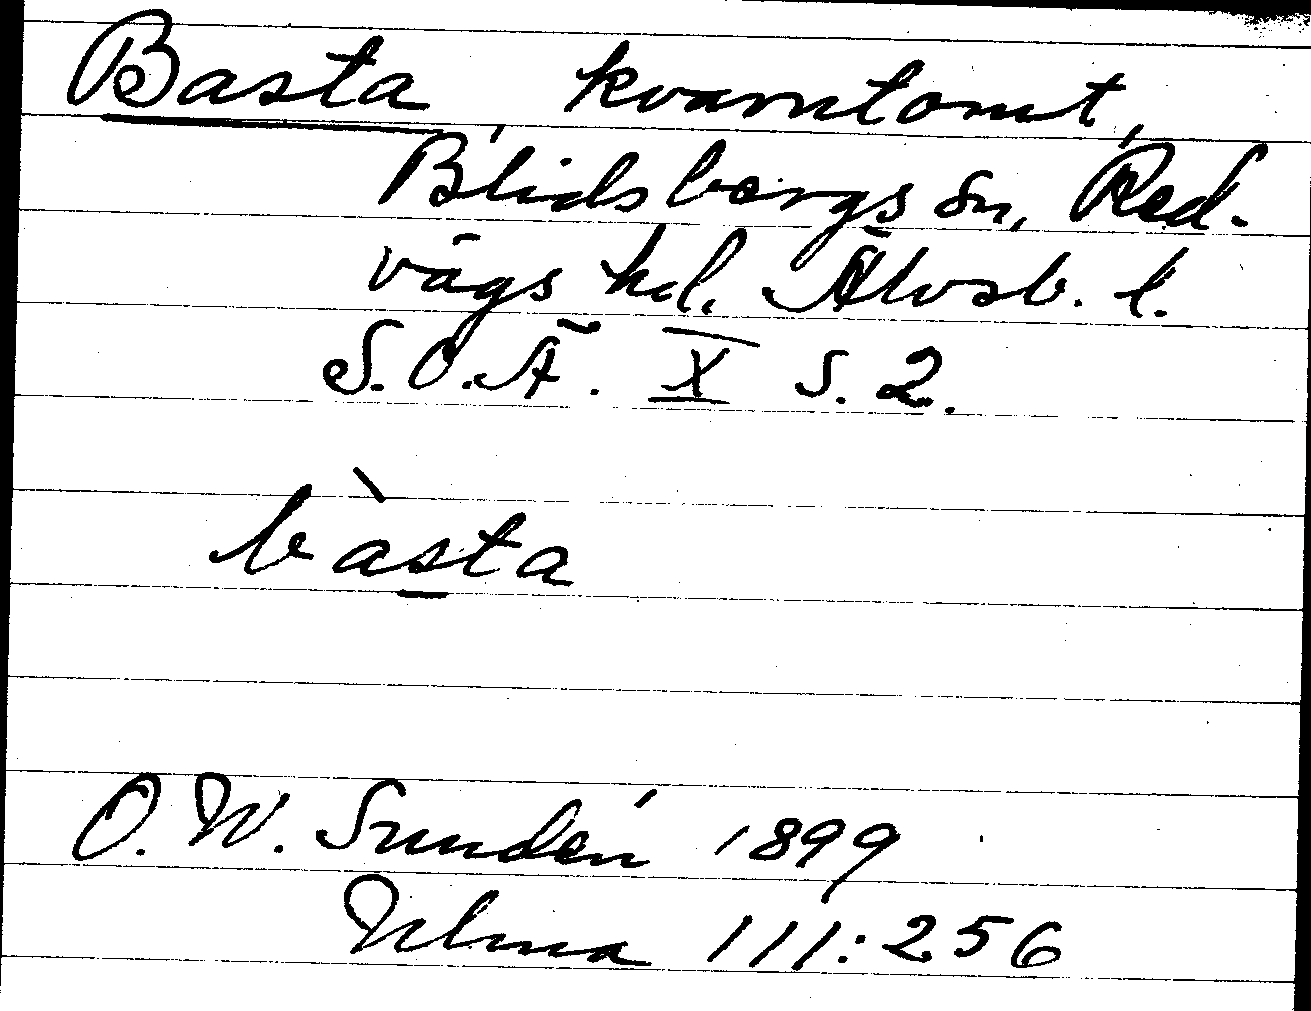 Basta, kvarntomt,
Blidsbergs sn, Red-
vägs hd. Älvsb. l.
S.O.Ä. X s. 2.
bàsta
O. W. Sundén 1899
Ulma 111:256